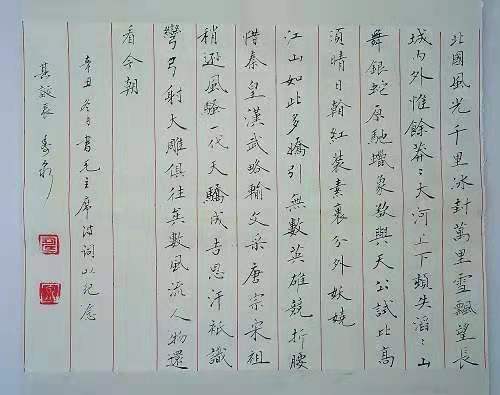 北國風光千里冰封萬里雪飄望長
城內外惟餘莽〻大河上下頓失滔〻山
舞銀蛇原馳蠟象欲與天公試比高
須晴日翰紅裝素裹分外妖嬈
江山如此多嬌引無數英雄競折腰
惜秦皇漢武略輸文采唐宗宋祖
稍遜風騷一代天驕成吉思汗祇識
彎弓射大雕俱往矣數風流人物還
看今朝
辛丑冬月書毛主席詩詞以紀念
其誕辰